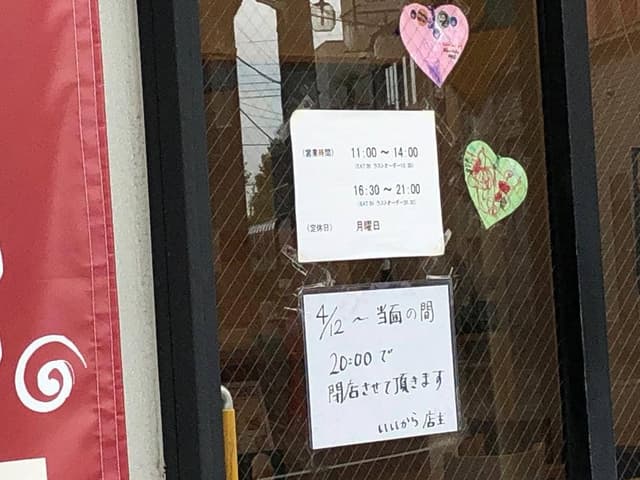 (営業時間) 11:00 ～ 14:00
(EAT IN ラストオーダー13:30)
16:30 ～ 21:00
(EAT IN ラストオーダー20:30)
(定休日) 月曜日
4/12 ～ 当面の間
20:00で
閉店させて頂きます
いいから 店主